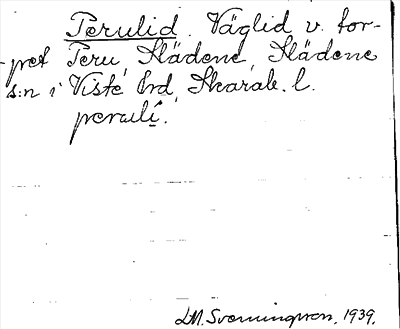 Perulid. Väglid v. tor-
pet Peru, Slädene, Slädene
s:n i Viste hd, Skarab. l.
peruli.
J.M. Svenningsson, 1939.